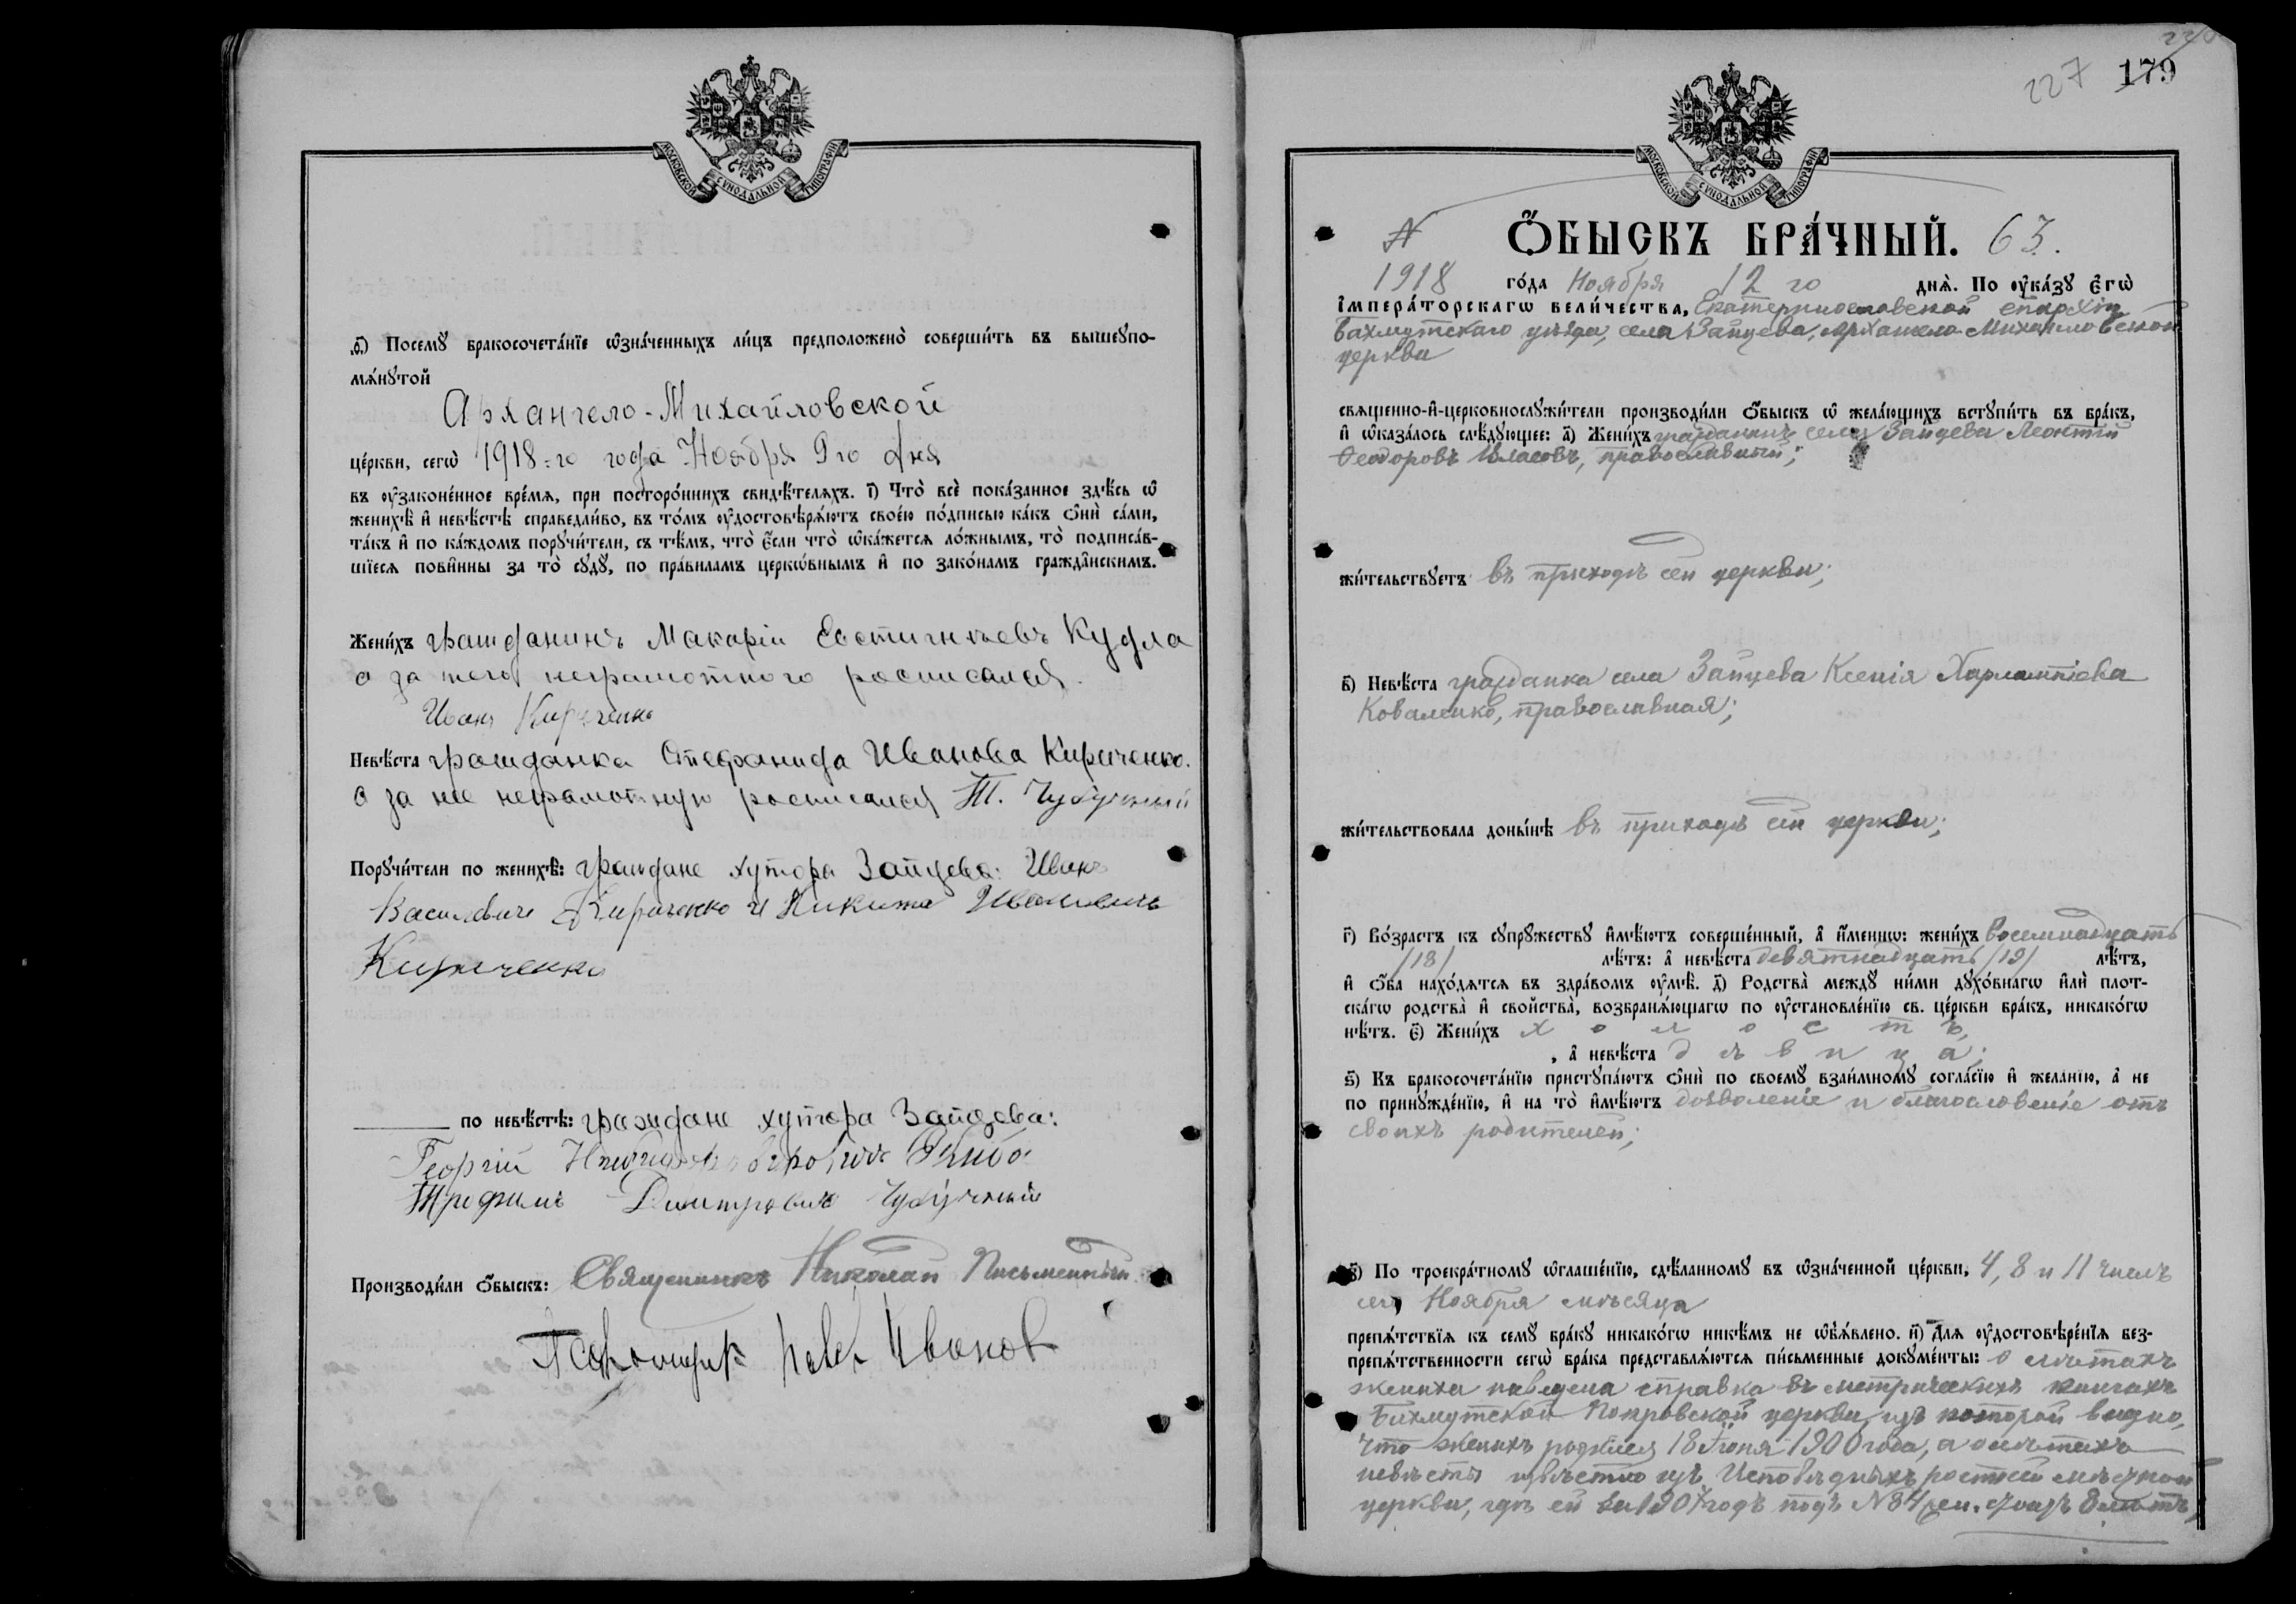 МОСКОВСКОЙ СѴНОДАЛЬНОЙ ТИПОГРАФІИ
.ѳ҃) Посемꙋ̀ бракосочета́нїе ѡ҆зна́ченныхъ ли́цъ предположено̀ соверши́ть въ вышеꙋпо-
мѧ́нꙋтой
Архангело-Михайловской
це́ркви, сегѡ̀ 1918-го года Ноября 9 го дня
въ ᲂу҆законе́нное вре́мѧ, при посторо́ннихъ свидѣ́телѧхъ. і҃) Что̀ всѐ пока́занное здѣ́сь ѡ҆
женихѣ̀ и҆ невѣ́стѣ справедли́во, въ то́мъ ᲂу҆достовѣрѧ́ютъ свое́ю по́дписью ка́къ ѻ҆нѝ са́ми,
та́къ и҆ по ка́ждомъ порꙋчи́тели, съ тѣ́мъ, что̀ є҆́сли что̀ ѡ҆ка́жетсѧ ло́жнымъ, то̀ подписа́в-
шїесѧ пови́нны за то̀ сꙋдꙋ̀, по пра́виламъ церкѡ́внымъ и҆ по зако́намъ гражда̂нскимъ.
Жени́хъ гражданинъ Макарій Евстигнѣевъ Кудла
а за него неграмотного росписался
Иванъ Кириченко
Невѣ́ста гражданка Стефанида Иванова Кириченко.
а за нее неграмотную росписался Т.
Порꙋчи́тели по женихѣ̀: граждане хутора Зайцева: Иванъ
Василевичъ Кириченко и Никита Ивановичъ
Кириченко
по невѣ́стѣ: граждане хутора Зайцева:
Георгій
Трофимъ Димитровичъ
Производи́ли ѻ҆́быскъ: Священникъ Николай Письменный
Псаломщикъ Иванов
227 179
МОСКОВСКОЙ СѴНОДАЛЬНОЙ ТИПОГРАФІИ
N ѺБЫСКЪ БРА́ЧНЫЙ. 63.
1918 го́да Ноября 12 го днѧ̀. По ᲂу҆ка́зꙋ є҆гѡ̀
і҆мпера́торскагѡ вели́чества, Екатеринославской епархіи
Бахмутскаго уѣзда, села Зайцева, Архангело-Михайловской
церкви
свѧще́нно-и҆-церковнослꙋжи́тели производи́ли ѻ҆́быскъ ѡ҆ жела́ющихъ встꙋпи́ть въ бра́къ,
и҆ ѡ҆каза́лось слѣ́дꙋющее: а҃) Жени́хъ гражданинъ села Зайцева Леонтій
Ѳеодоровъ Власовъ, православный;
жи́тельствꙋетъ въ приходѣ сей церкви;
в҃) Невѣ́ста гражданка села Зайцева Ксенія Харлампіева
Коваленко, православная;
жи́тельствовала доны́нѣ въ приходѣ сей церкви;
г҃) Во́зрастъ къ сꙋпрꙋ́жествꙋ и҆мѣ́ютъ соверше́нный, а҆ и҆́меннѡ: жени́хъ восемнадцать
/18/ лѣ́тъ: а҆ невѣ́ста девятнадцать /19/ лѣ́тъ,
и҆ ѻ҆́ба нахо́дѧтсѧ въ здра́вомъ ᲂу҆мѣ̀. д҃) Родства̀ междꙋ̀ ни́ми дꙋхо́внагѡ и҆лѝ плот-
ска́гѡ родства̀ и҆ сво́йства̀, возбранѧ́ющагѡ по ᲂу҆становле́нїю св. це́ркви бра́къ, никако́гѡ
нѣ́тъ. є҃) Жени́хъ холостъ,
, а҆ невѣ́ста дѣвица;
ѕ҃) Къ бракосочета́нїю пристꙋпа́ютъ ѻ҆нѝ по своемꙋ̀ взаи́мномꙋ согла́сїю и҆ жела́нїю, а҆ не
по принꙋжде́нїю, и҆ на то̀ и҆мѣ́ютъ дозволеніе и благословеніе отъ
своихъ родителей;
з҃) По троекра́тномꙋ ѡ҆глаше́нїю, сдѣ́ланномꙋ въ ѡ҆зна́ченной це́ркви, 4, 8 и 11 числъ
сего Ноября мѣсяца
препѧ́тствїѧ къ семꙋ̀ бра́кꙋ никако́гѡ никѣ́мъ не ѡ҆б̾ѧ́влено. и҃) Длѧ ᲂу҆достовѣре́нїѧ без-
препѧ́тственности сегѡ̀ бра́ка представлѧ́ютсѧ пи́сьменные докꙋме́нты: о лѣтахъ
жениха наведена справка въ метрическихъ книгахъ
Бахмутской Покровской церкви, изъ которой видно,
что женихъ родился 18 Іюня 1900 года, а о лѣтахъ
невѣсты извѣстно изъ Исповѣдныхъ росписей мѣстной
церкви, гдѣ ей за 1907 годъ подъ N 84 8 лѣтъ,